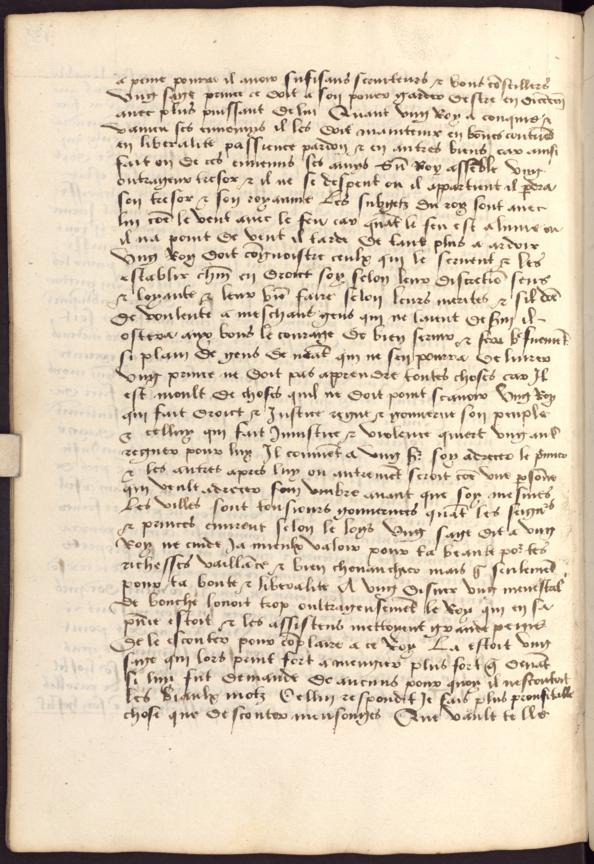 a peine pourra il avoir suffisans serviteurs & bons cõseillers
Ung sage prince ce doit a son povoir garder destre en
avec plus puissant de lui Quant ung Roy a conquis &
vaincu ses ennemis il les doit maintenir en bõnes coustumes
en liberalite passience pardon & en autres biens car ainsi
fait on de ces ennemis ses amys Sũ Roy assẽble ung
oultrageux tresor & il ne se despent ou il appartient il pdra
son tresor & son royaume Les subgetz du roy sont avec
lui cõe le vent avec le feu car quãt le feu est alume ou
il na point de vent il tarde de tant plus a ardoir
Ung Roy doit congnoistre ceulx qui le servent & les
establir chũ en droict soy selon leur discrecion sens
& loyaute & leur biẽ faire selon leurs merites & sil dõe
de voulente a meschans gens qui ne laient il
ostera aux bons le courage de bien servir & sera
si plain de gens de qui ne sen pourra delivrer
Ung prince ne doit pas apprendre toutes choses car Il
est moult de choses quil ne doit point scavoir Ung Roy
qui fait droict & Justice regne & gouverne son peuple
& celluy qui fait Injustice & violence quiert ung aultre
regner pour luy Il convient a ung soy adrecer le pmier
& les autres apres luy ou autremẽt seroit cõe une psone
qui veult adrecer son umbre avant que soy mesmes
Les villes sont tousiours gouvernees quãt les seigrs
& princes euvrent selon le loys Ung sage dit a ung
Roy ne cuide Ja mieulx valoir pour ta beaute por tes
richesses vaillãce & bien chevaucher mais seulemẽt
pour ta bonte & liberalite A ung disner ung menestrel
de bouche louoit trop oultrageusemẽt le Roy qui en sa
pñce estoit & les assistens mettoient grande peine
de le escouter pour cõplaire a ce Roy La estoit ung
sage qui lors print fort a menger plus fort q devãt
si lui fut demande de aucuns pour quoy il nescoutoit
les biaulx motz Cellui respondit Je fais plus prouffitable
chose que descouter mensonges Que vault telle